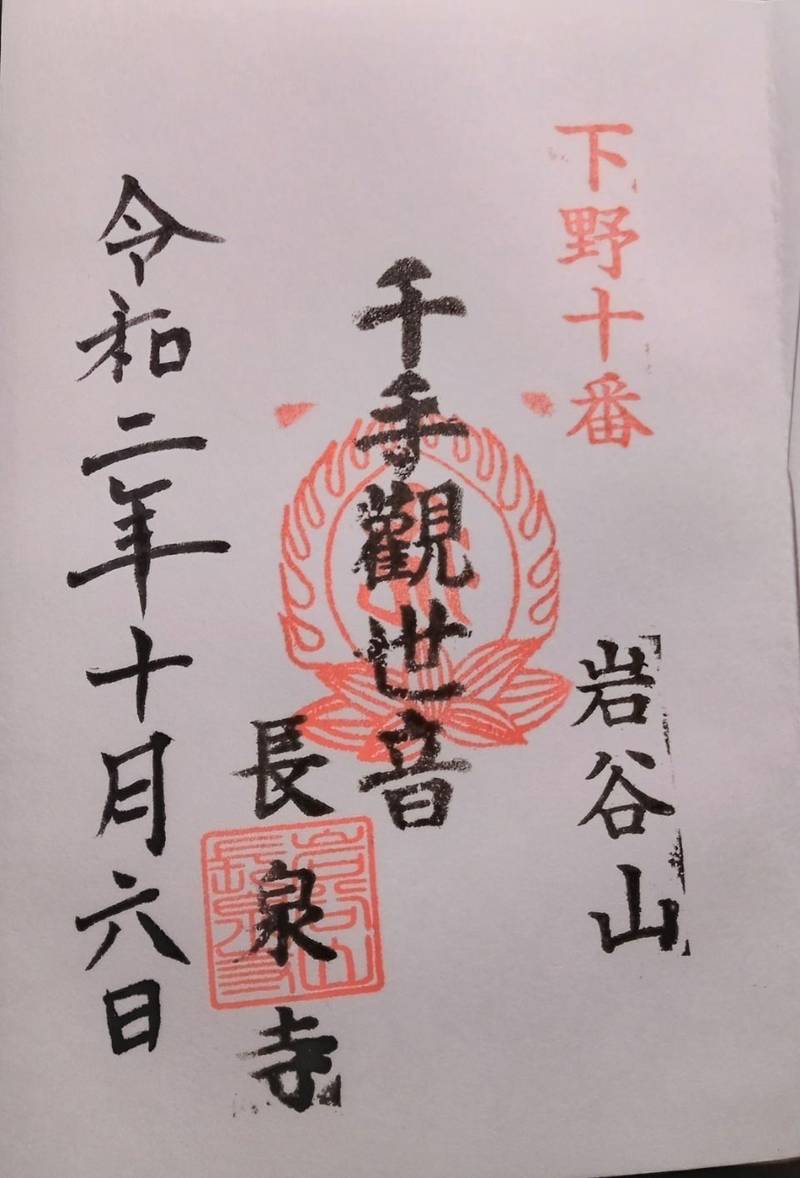 下野十番
岩谷山
千手觀世音
長泉寺
令和二年十月六日